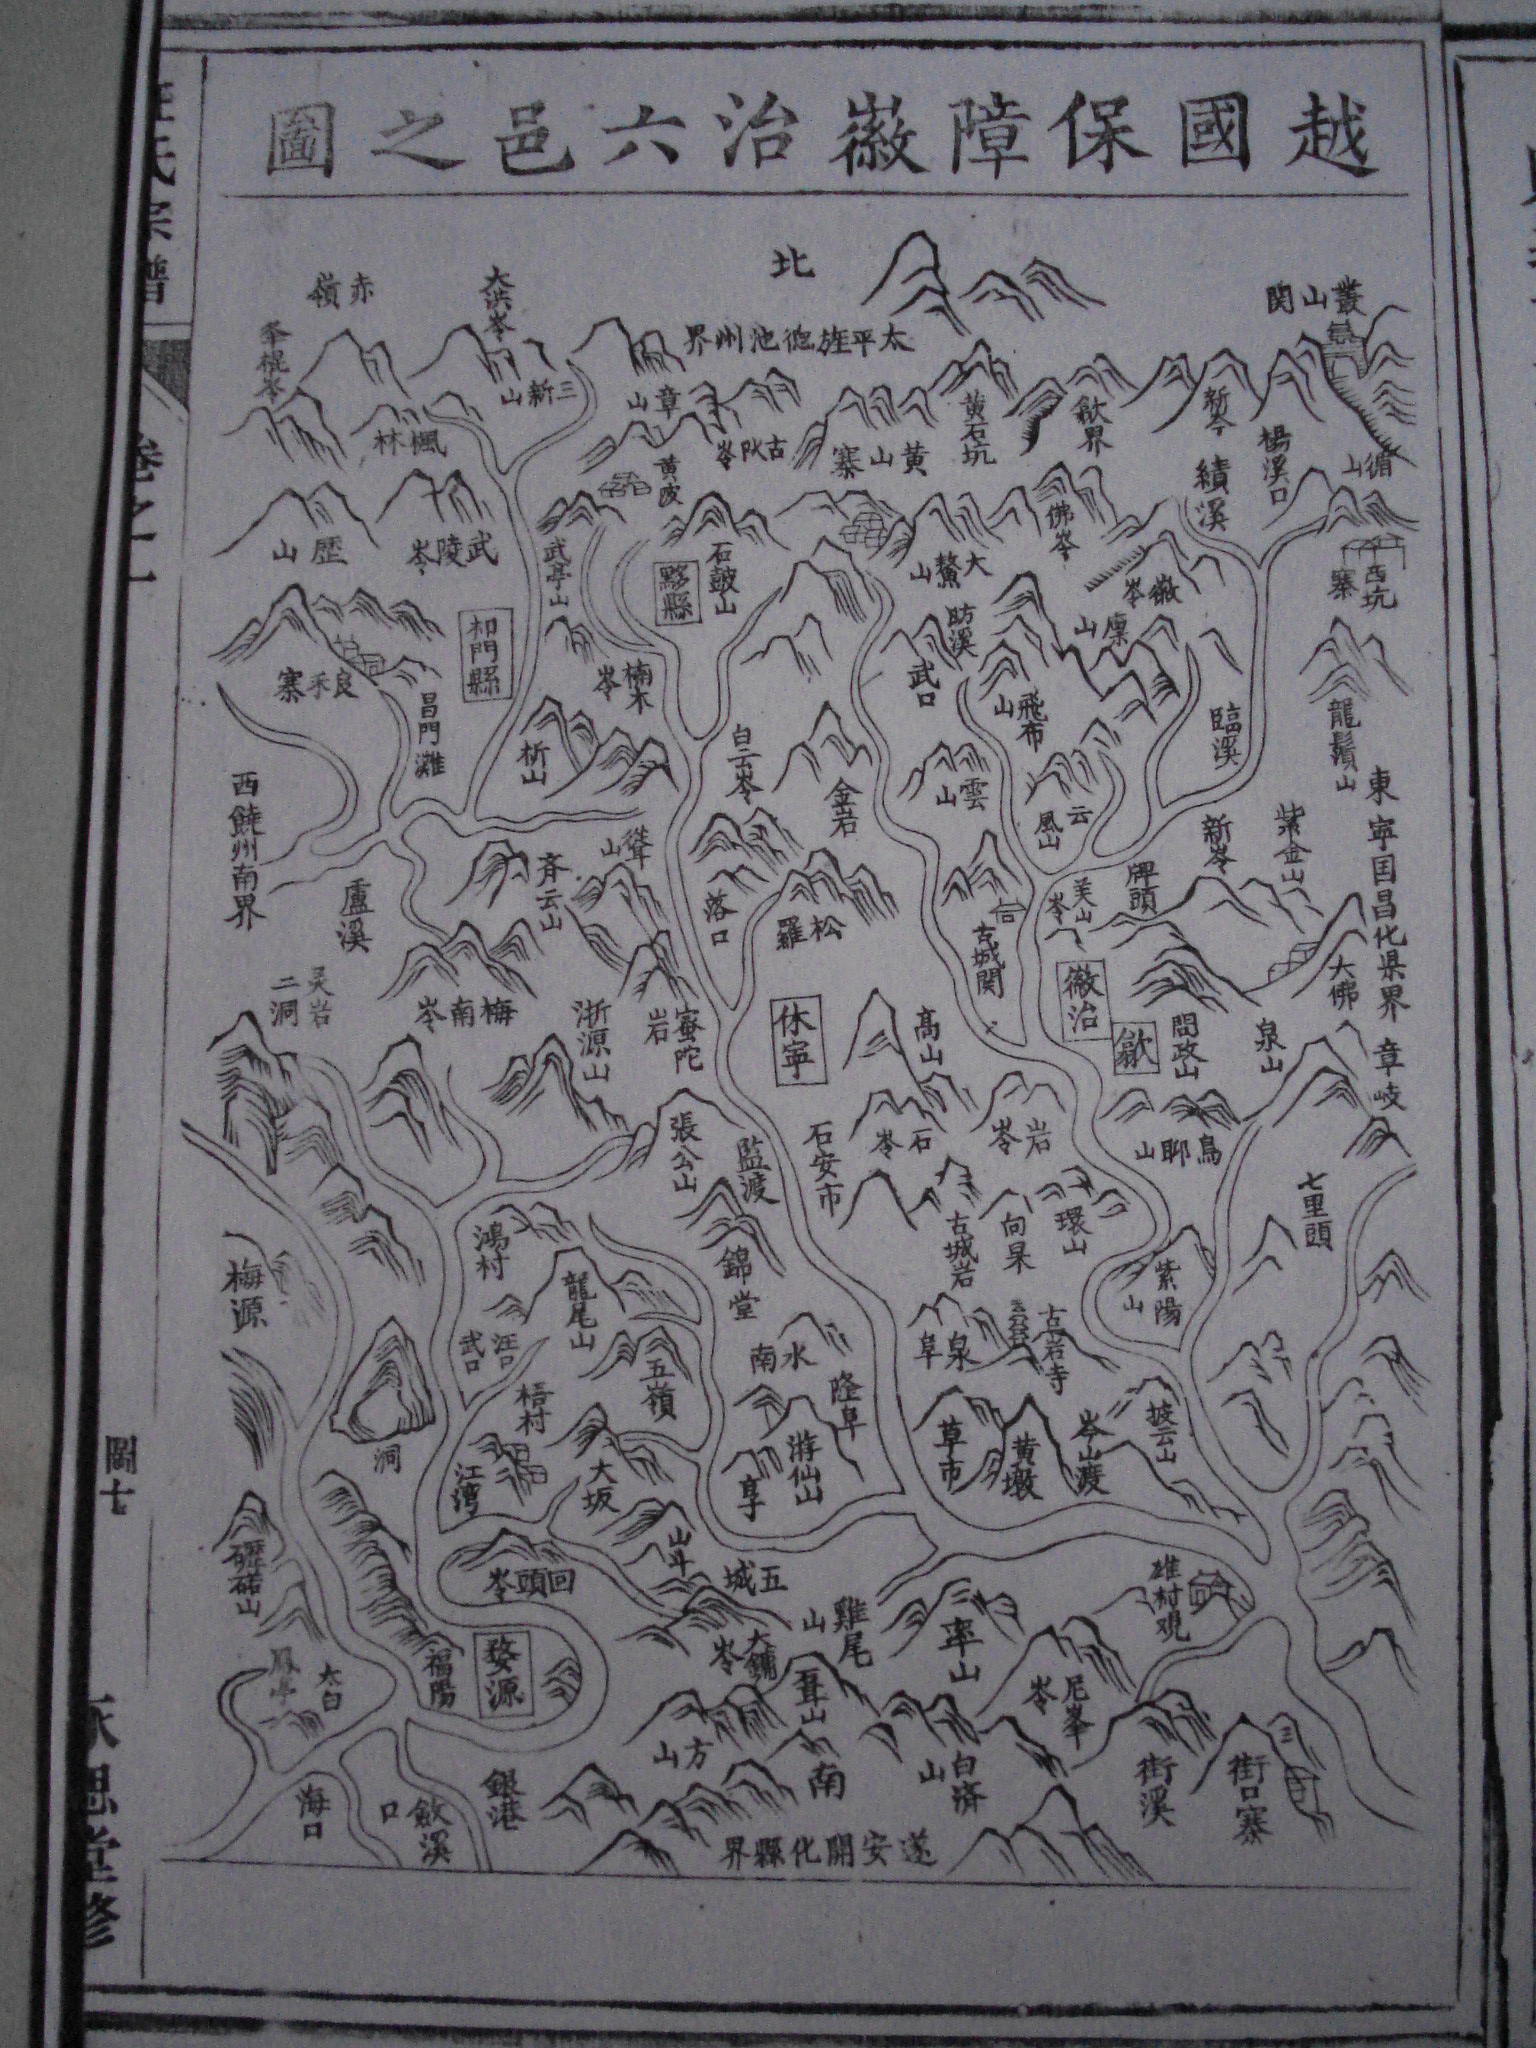 越國保障徽治六邑之圖
北
叢山関
赤嶺
大洪岺
太平旌德池州界
三新山
章山
楓林
古㘬岺
黄山寨
黄石坑
歙界
新岺
楊溪口
績溪
循山
黄陂
歷山
武陵岺
武亭山
石皷山
黟縣
大鰲山
佛岺
徽岺
西坑寨
昉溪
武口
飛布山
臨溪
龍鬚山
良禾寨
昌門灘
楠木岺
祈山
白云岺
金岩
雲山
云風山
新岺
紫金山
東寧国昌化県界
西饒州南界
盧溪
斉云山
落口
松羅
古城関
美山岺
牌頭
徽治
歙
問政山
大佛
泉山
章岐
吴岩二洞
梅南岺
浙源山
蜜陀岩
休寧
高山
石岺
岩岺
烏聊山
七里頭
張公山
監渡
石安市
古城岩
向杲
環山
紫陽山
梅源
鴻村
龍尾山
錦堂
水南
隆阜
泉阜
古岩寺
武口
汪口
五嶺
梧村
江湾
大坂
游仙山
草市
黄墩
岑山渡
披云山
洞
回頭岺
山斗
五城
雞尾山
率山
雄村观
婺源
福陽
太白
大鏞岺
葺山
尼峯岺
方山
南
白済山
街溪
街口寨
海口
㰸溪口
銀港
遂安開化縣界
圖七